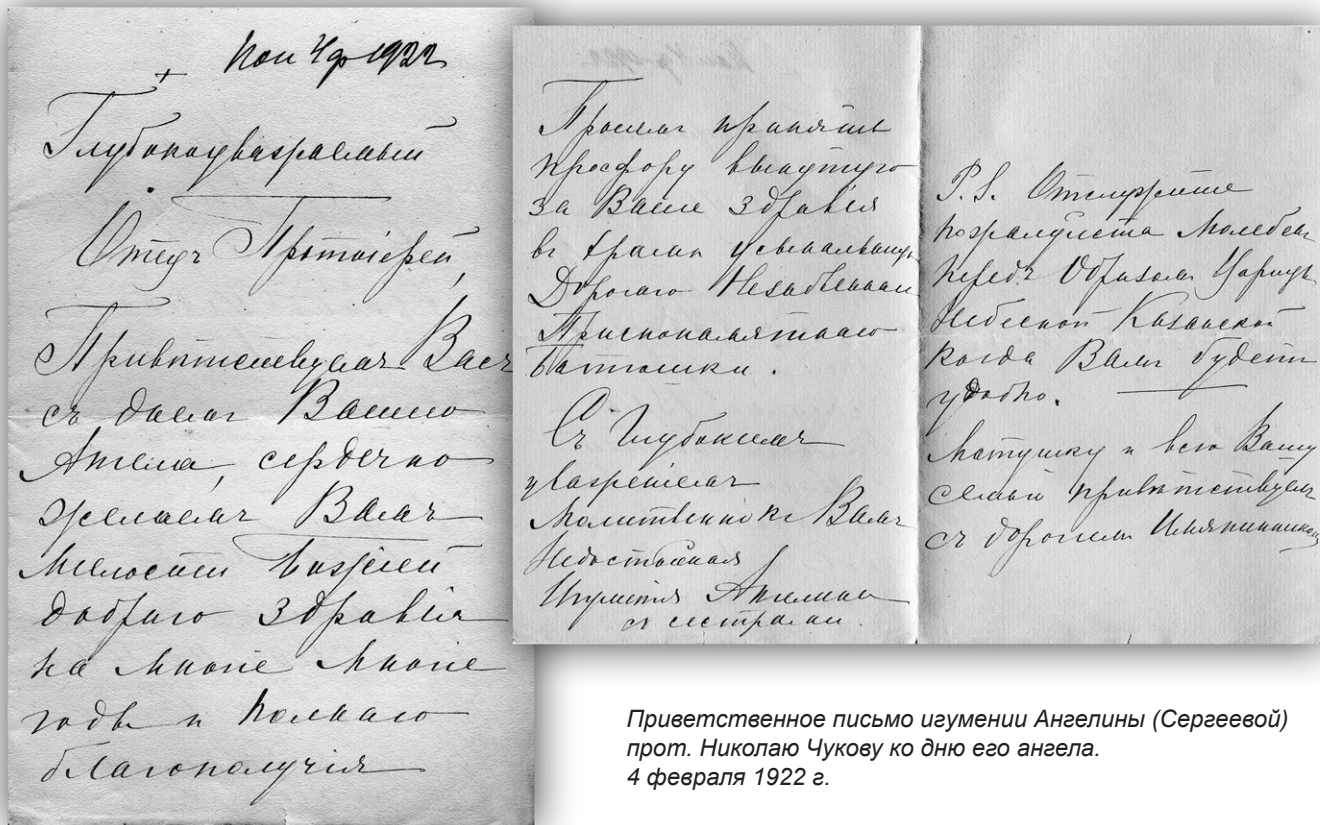 4 ф 1922
+
Глубокоуважаемый
Отецъ Протоіерей,
Привѣтствуемъ Васъ
съ днемъ Вашего
Ангела, сердечно
желаемъ Вамъ
Милости Божіей
добраго здравія
на многіе многіе
годы и полнаго
благополучія
Просимъ принять
просфору вынутую
за Ваше здравія
въ храмѣ усыпальницѣ
Дорогаго Незабвеннаго
Приснопамятнаго
Батюшки.
Съ глубокимъ
уваженіемъ
Молитвенно къ Вамъ
Недостойная
Игуменія Ангелина
съ сестрами.
P.S. Отслужите
пожалуйста молебенъ
передъ Образомъ Царицы
Небесной Казанской
когда Вамъ будетъ
удобно.
Матушку и всю Вашу
семью привѣтствуемъ
съ дорогимъ Имянинникомъ
Приветственное письмо игумении Ангелины (Сергеевой)
прот. Николаю Чукову ко дню его ангела.
4 февраля 1922 г.